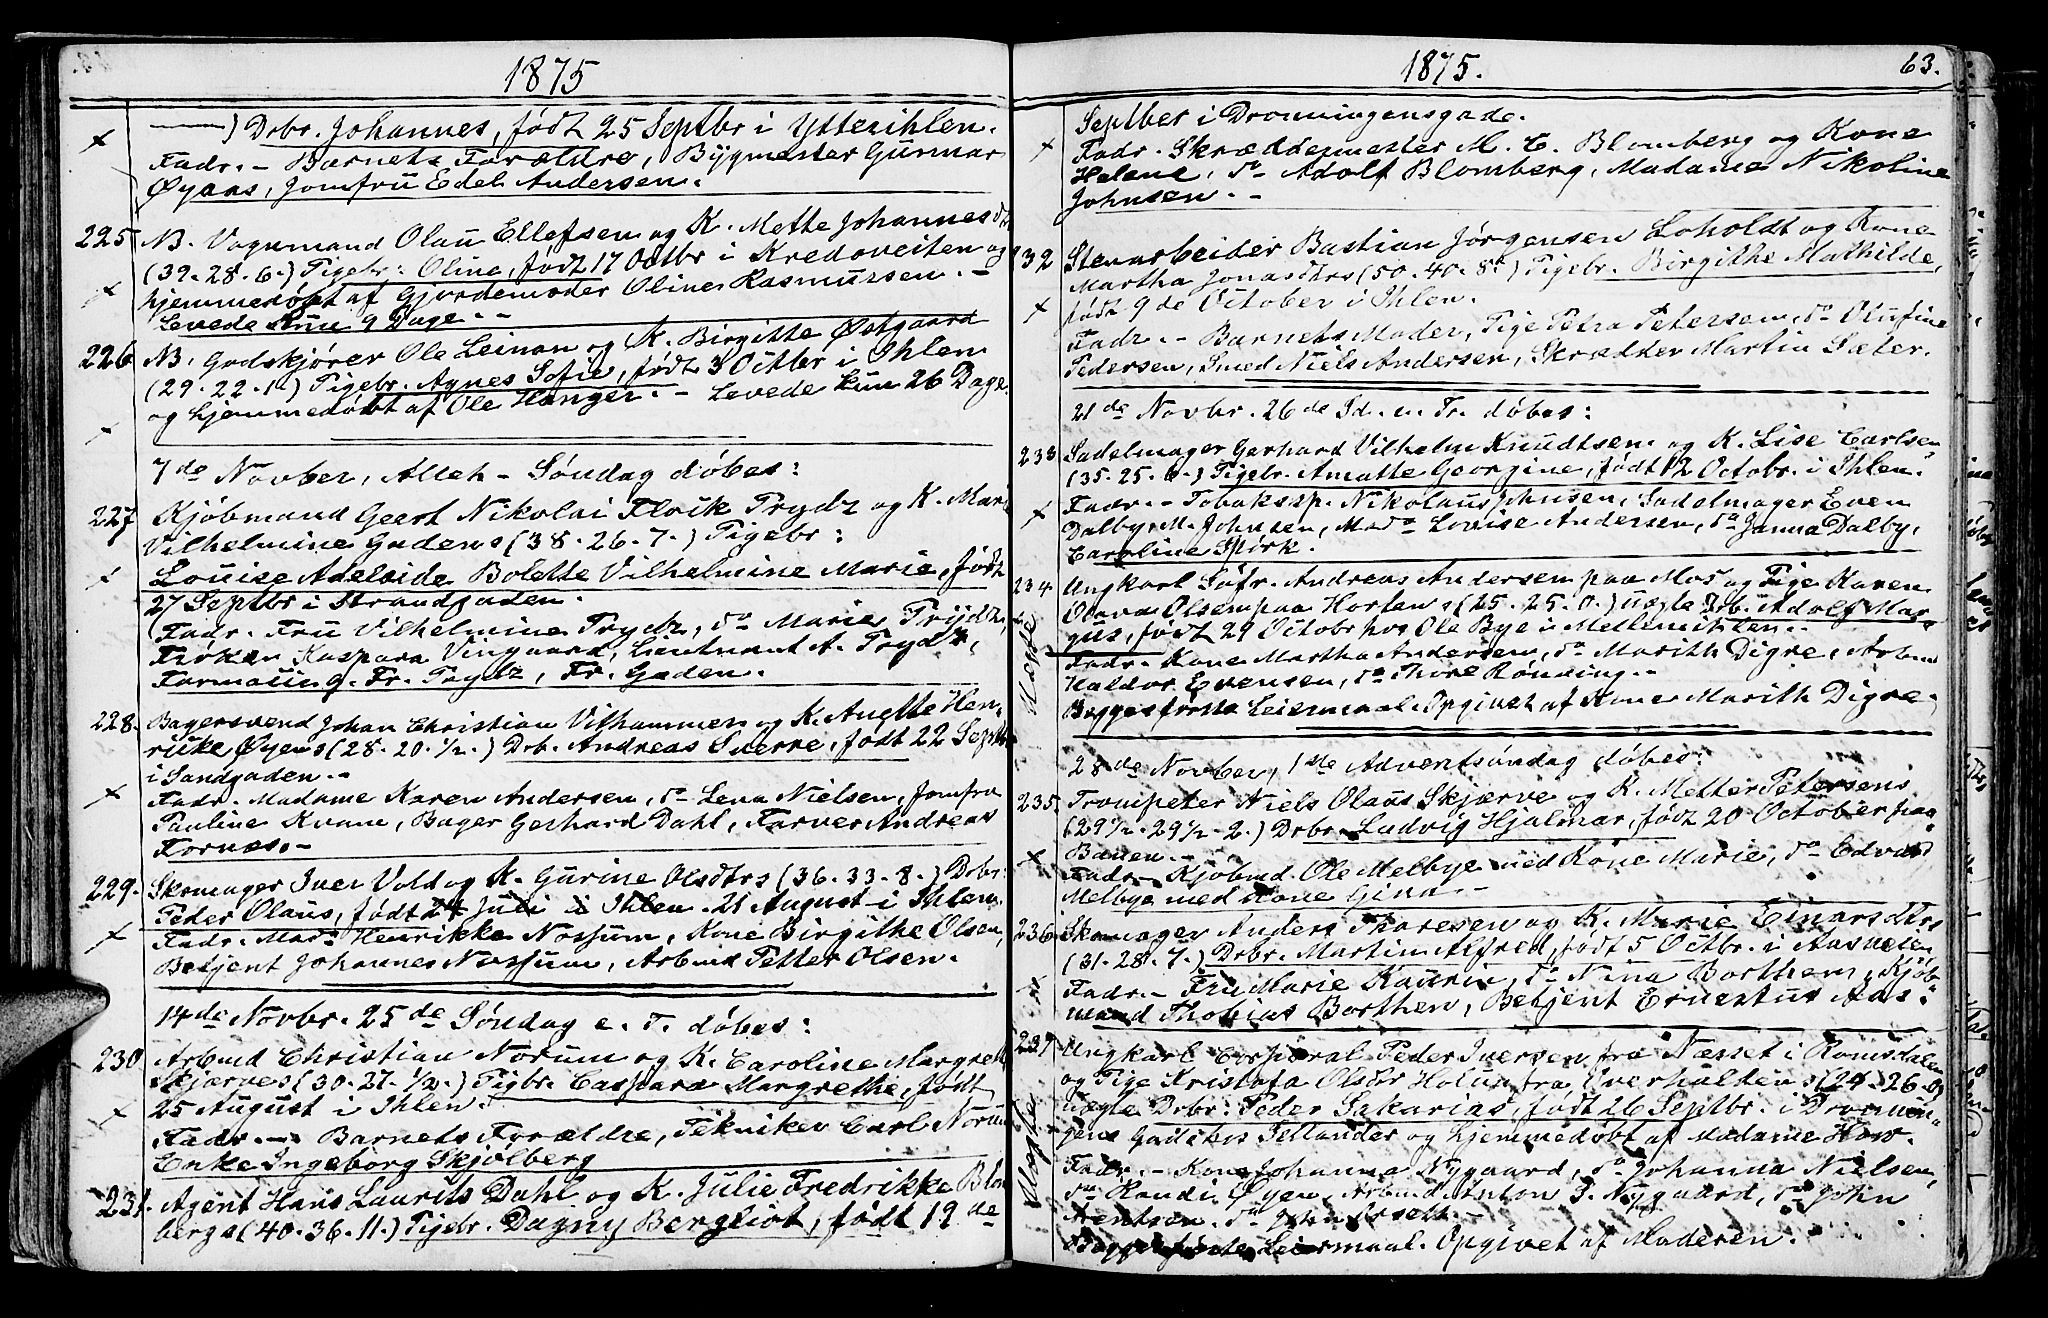 1875
—) Drbr. Johannes, födt 25 Septbr i Ytterihlen.
Fadr. - Barnets Forældre, Bygmester Gunnar
Øyaas, Jomfru Edel Andersen.
225 NB. Vognmand Olau Ellefsen og K. Mette Johannesdtr
(39-28-6.) Pigebr: Olina, födt 17 Octbr i Kredoveiten og
hjemmedöbt af Gjordemoder Oline Rasmussen. -
Levede kun 9 Dage. -
226 NB. Godskjörer Ole Leinan og K. Birgitte Østgaard
(29-22-1-) Pigebr. Agnes Sofie, födt 3 Octbr i Ihlen
og hjemmedöbt af Ole Hanger. - Levede kun 26 Dage.
7de Novber, Alleh-Söndag döbes:
227 Kjöbmand Geert Nikolai Flvik Trydz og K. Mari
Vilhelmine Gadens (38-26-7.) Pigebr:
Louise Adelaide Bolette Vilhelmine Marie, födt
27 Septbr i Strandgaden.
Fadr. Fru Vilhelmine Trydz, do Marie Trydz,
Fröken Kaspara Vingaard, Lieutnant A. Trydz,
Farmasing. Fr. Trydz, Fr. Gaden.
228. Bagersvend Johan Christian Vifhammer og K. Anette Hen-
rikke Øyens (28-20-½.) Drb. Andreas Sverre, födt 22 Septbr
i Sandgaden. -
Fadr. Madame Karen Andersen, do Lena Nielsen, Jomfru
Pauline Kvane, Bager Gerhard Dahl, Farver Andreas
Fornæs. -
229. Skomager Iver Vold og K. Gurine Olsdtrs (36-33-8.) Drbr:
Peder Olaus, födt 24 Juli i Ihlen. 21 August i Ihlen.
Fadr. Mad: Henrikke Nossum, Kone Birgithe Olsen,
Betjent Johannes Nossum, Arbmd Petter Olsen.
14de Novbr. 25de Söndag e. T. döbes:
230 Arbmd Christian Norum og K. Caroline Margrete
Skjærves (30-27-½.) Pigbr. Caspara Margrethe, födt
25 August i Ihlen.
Fadr. - Barnets Forældre, Tekniker Carl Norum
Enke Ingeborg Skjölberg
231. Agent Hans Laurits Dahl og K. Julie Fredrikke Blom
bergs (40-36-11.) Pigebr. Dagny Bergliot, födt 19de
1875. 63.
Septber i Dronningensgade.
Fadr. Skræddermester M. C. Blomberg og Kone
Helene, do Adolf Blomberg, Madame Nikoline
Johnsen. -
232 Stenarbeider Bastian Jörgensen Loholdt og Kone
Martha Jonasdtrs (50-40-8.) Pigebr. Birgithe Mathilde,
födt 9de October i Ihlen.
Fadr. - Barnets Moder, Pige Petra Petersen, do Olufine
Pedersen, Smed Niels Andersen, Skrædder Martin Sæter.
21de Novbr. 26de Sd. e. Tr. döbes:
233 Sadelmager Gerhard Vilhelm Knudtsen og K. Lise Carlsen
(35-25-6.) Pigebr. Amatte Georgine, födt 12 Octobr. i Ihlen.
Fadr. - Tobakssp. Nikolaus Johnsen, Sadelmager Even
Dalby, M. Johnsen, Mado Lovise Andersen, do Janna Dalby,
Caroline Spörk.
234 Ungkarl Söfr. Andreas Andersen paa Mos og Pige Karen
Olava Olsen paa Hortens (25-25-0.) uægte Drb. Adolf Mar-
gus, födt 29 Octobr hos Ole Bye i Mellemihlen. -
Fadr. Kone Martha Andersen, do Marith Digre, Arbmd
Haldor Evensen, do Thore Rönning. -
Begges förste Leiermaal. Opgivet af Kone Marith Digre.
Uægte
28de Novber, 1ste Adventsöndag döbes:
235. Trompeter Niels Olaus Skjærve og K. Mette Petersens
(29½-29½-2.) Drbr. Ludvig Hjalmar, födt 20 October paa
Banen. -
Fadr - Kjöbmd Ole Melbye med Kone Marie, do Edvard
Melbye med Kone Gina. -
236 Skomager Anders Thoresen og K. Marie Einarsdtrs
(31-28-7.) Drbr. Martin Alfred, födt 5 Octbr. i Aasveien,
Fadr. - Fru Marie Kaurin, do Nina Borthen, Kjöb-
mand Thobias Borthen, Betjent Ernestus Aas.
237 Ungkarl Corporal Peder Iversen fra Næsset i Romsdalen
og Pige Kristofa Olsdtr Holum fra Overhaldens (24-26-0)
uægte Drbr. Peder Sakarias, födt 26 Septbr. i Dronnin-
gens Gade hos Jellander og hjemmedöbt af Madame How.
Fadr. - Kone Johanna Nygaard, do Johanna Nielsen,
do Randi Øyen, Arbmd Anton P. Nygaard, do John
Arentsen, do John Orsett. -
Begges förste Leiermaal. Opgivet af Moderen.
Uægte